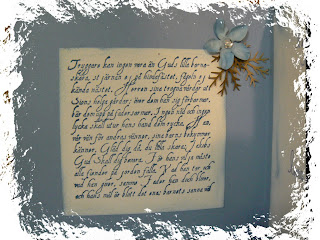 Tryggare kan ingen vara än Guds lilla barna-
skara, stjärnan ej på himlafästet, fågeln ej i
kända nästet. Herren sina trogna vårdar uti
Sions helga gårdar; över dem han sig förbarmar,
bär dem uppå fadersarmar. Ingen nöd och ingen
lycka skall utur hans hand dem rycka. Han
vår vän för andra vänner, sina barns bekymmer
känner. Gläd dig då, du lilla skara: Jakobs
Gud skall dig bevara. vilja måste
alla fiender på jorden falla. Vad han tar och
vad han giver, samme Fader han dock bliver,
och hans mål är blott det ena: barnets sanna väl